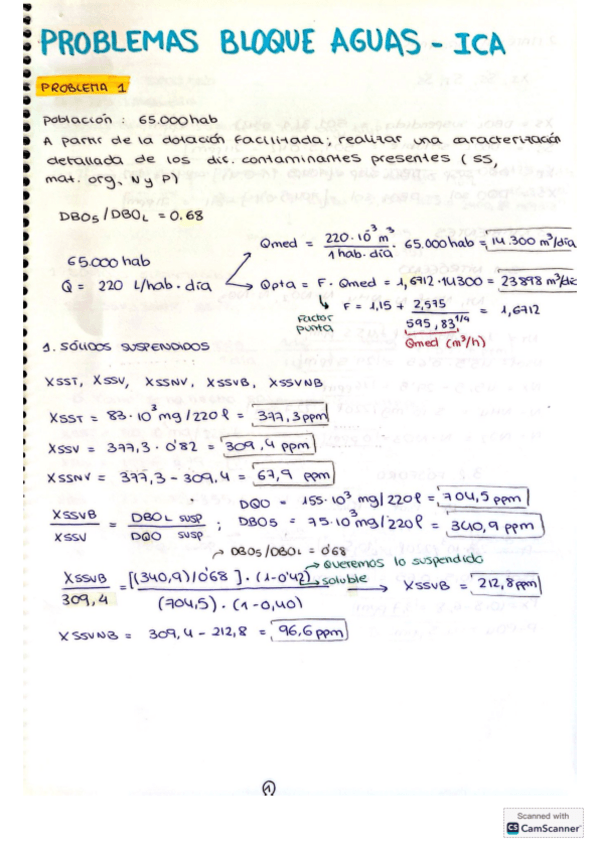 PROBLEMAS BLOQUE AGUAS - ICA
PROBLEMA 1
Población : 65.000 hab
A partir de la dotación facilitada; realizar una caracterización
detallada de los dic. contaminantes presentes (SS,
mat. org, N y P)
DBO5 / DBOL = 0.68
65.000 hab
Q = 220 L/hab · día
Qmed = 220·10⁻³ m³ / 1 hab · día · 65.000 hab = 14.300 m³/día
Qpta = F · Qmed = 1,6712 · 14300 = 23898 m³/día
Factor punta
F = 1,15 + 2,575 / 595,83^1/4 = 1,6712
Qmed (m³/h)
1. SÓLIDOS SUSPENDIDOS
XSST, XSSV, XSSNV, XSSVB, XSSVNB
XSST = 83 · 10³ mg / 220 l = 377,3 ppm
XSSV = 377,3 · 0'82 = 309,4 ppm
XSSNV = 377,3 - 309,4 = 67,9 ppm
XSSVB / XSSV = DBOL SUSP / DQO SUSP ;
DQO = 155·10³ mg/220l = 704,5 ppm
DBO5 = 75·10³ mg/220l = 340,9 ppm
DBO5/DBOL = 0'68
XSSVB / 309,4 = [(340,9)/0'68] · (1-0'42) / (704,5) · (1-0,40)
Queremos lo suspendido
soluble
XSSVB = 212,8 ppm
XSSVNB = 309,4 - 212,8 = 96,6 ppm
1
Scanned with
CS CamScanner